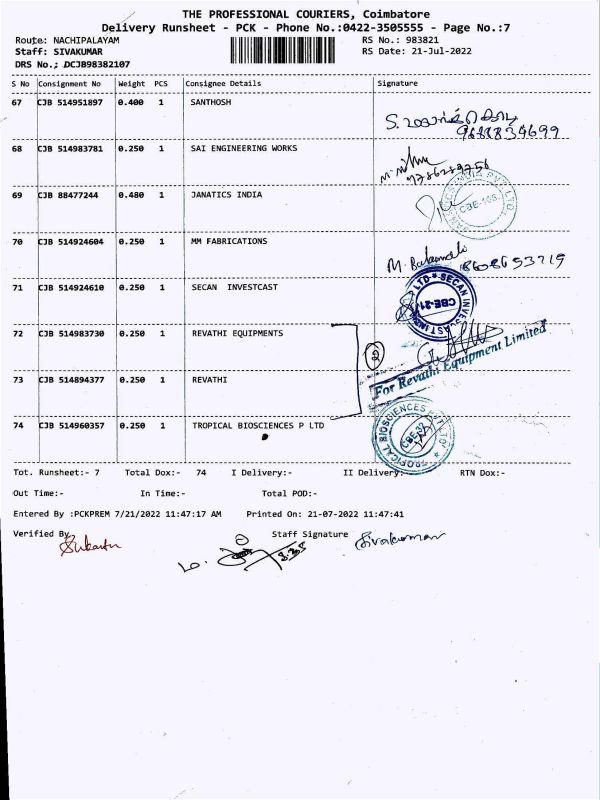 THE PROFESSIONAL COURIERS, Coimbatore
Delivery Runsheet - PCK - Phone No.:0422-3505555 - Page No.:7
Route: NACHIPALAYAM RS No.: 983821
Staff: SIVAKUMAR RS Date: 21-Jul-2022
DRS No.: DCJB98382107
S No Consignment No Weight PCS Consignee Details Signature
67 CJB 514951897 0.400 1 SANTHOSH
9688834699
68 CJB 514983781 0.250 1 SAI ENGINEERING WORKS
9786289756
69 CJB 88477244 0.480 1 JANATICS INDIA
CBE-105
70 CJB 514924604 0.250 1 MM FABRICATIONS
8608653219
71 CJB 514924610 0.250 1 SECAN INVESTCAST
SECAN INVESTCAST
CBE-21
72 CJB 514983730 0.250 1 REVATHI EQUIPMENTS
For Revathi Equipment Limited
73 CJB 514894377 0.250 1 REVATHI
74 CJB 514960357 0.250 1 TROPICAL BIOSCIENCES P LTD
TROPICAL BIOSCIENCES PVT LTD
CBE-32
Tot. Runsheet:- 7 Total Dox:- 74 I Delivery:- II Delivery:- RTN Dox:-
Out Time:- In Time:- Total POD:-
Entered By :PCKPREM 7/21/2022 11:47:17 AM Printed On: 21-07-2022 11:47:41
Verified By Staff Signature Sivakumar